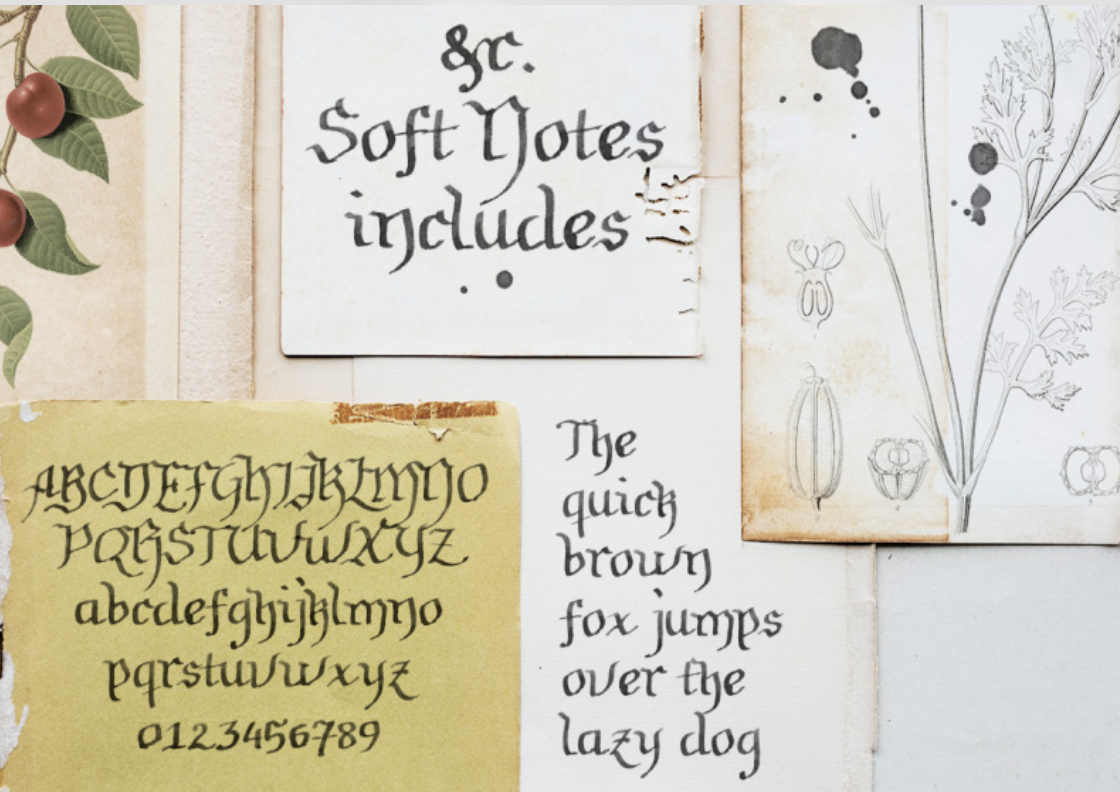 &c.
Soft Notes
includes
ABCDEFGHIJKLMNO
PQRSTUVWXYZ
abcdefghijklmno
pqrstuvwxyz
0123456789
The
quick
brown
fox jumps
over the
lazy dog